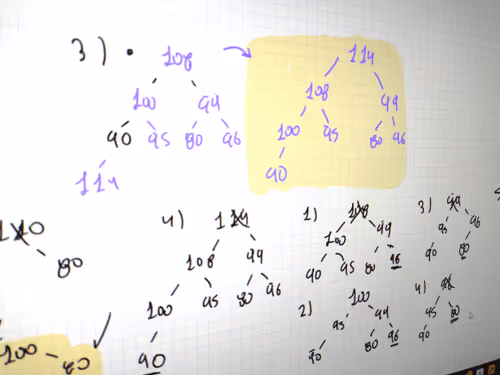 3) • 108 114
100 99 108 99
90 95 80 96 100 95 80 96
114 90
110
80
4) 114
108 99
100 95 80 96
90
1) 108
100 99
90 95 80 96
3) 99
95 96
90 80
2) 100
95 99
90 80 96
4)
95 80
90
100 80